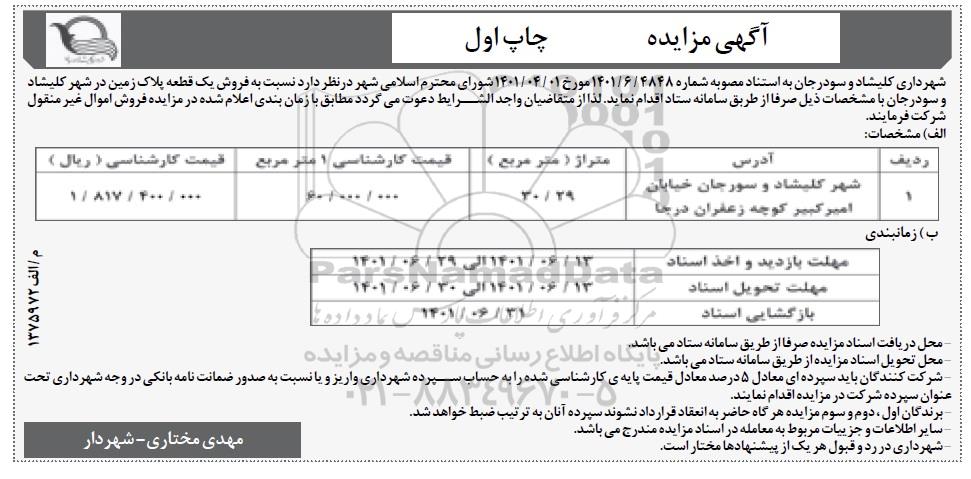 آگهی مزایده چاپ اول
شهرداری کلیشاد و سودرجان به استناد مصوبه شماره ۱۴۰۱/۶/۴۸۴۸ مورخ ۱۴۰۱/۰۴/۰۱ شورای محترم اسلامی شهر درنظر دارد نسبت به فروش یک قطعه پلاک زمین در شهر کلیشاد
و سودرجان با مشخصات ذیل صرفا از طریق سامانه ستاد اقدام نماید. لذا از متقاضیان واجد الشرایط دعوت می گردد مطابق با زمان بندی اعلام شده در مزایده فروش اموال غیر منقول
شرکت فرمایند.
الف) مشخصات:
ردیف آدرس متراژ ( متر مربع ) قیمت کارشناسی ۱ متر مربع قیمت کارشناسی ( ریال )
۱ شهر کلیشاد و سورجان خیابان امیرکبیر کوچه زعفران درجا ۳۰ / ۲۹ ۶۰ / ۰۰۰ / ۰۰۰ ۱ / ۸۱۷ / ۴۰۰ / ۰۰۰
ب) زمانبندی
مهلت بازدید و اخذ اسناد ۱۴۰۱ / ۰۶ / ۱۳ الی ۱۴۰۱ / ۰۶ / ۲۹
مهلت تحویل اسناد ۱۴۰۱ / ۰۶ / ۱۳ الی ۱۴۰۱ / ۰۶ / ۳۰
بازگشایی اسناد ۱۴۰۱ / ۰۶ / ۳۱
م/الف ۱۳۷۵۹۷۲
ParsNamadData
مرکز فرآوری اطلاعات پارس نماد داده ها
پایگاه اطلاع رسانی مناقصه و مزایده
۰۲۱-۸۸۳۴۹۶۷۰-۵
- محل دریافت اسناد مزایده صرفا از طریق سامانه ستاد می باشد.
- محل تحویل اسناد مزایده از طریق سامانه ستاد می باشد.
- شرکت کنندگان باید سپرده ای معادل ۵ درصد معادل قیمت پایه ی کارشناسی شده را به حساب سپرده شهرداری واریز و یا نسبت به صدور ضمانت نامه بانکی در وجه شهرداری تحت
عنوان سپرده شرکت در مزایده اقدام نمایند.
- برندگان اول، دوم و سوم مزایده هر گاه حاضر به انعقاد قرارداد نشوند سپرده آنان به ترتیب ضبط خواهد شد.
- سایر اطلاعات و جزییات مربوط به معامله در اسناد مزایده مندرج می باشد.
- شهرداری در رد و قبول هر یک از پیشنهادها مختار است.
مهدی مختاری-شهردار